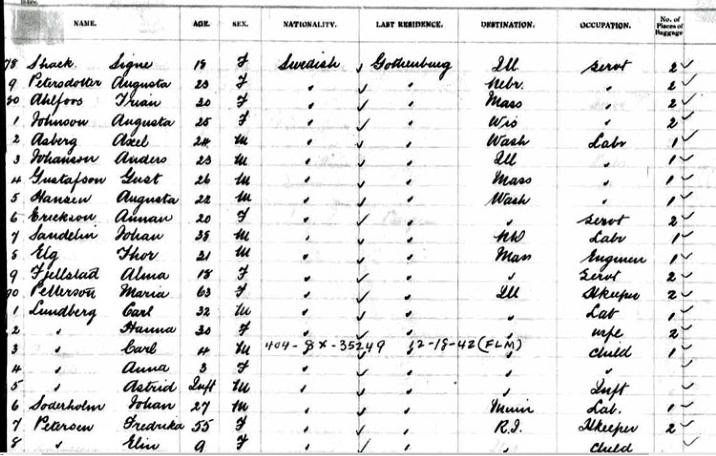 NAME. AGE. SEX. NATIONALITY. LAST RESIDENCE. DESTINATION. OCCUPATION. No. of Pieces of Baggage
78 Shack Signe 18 F Swedish Gothenburg Ill Servt 2
9 Petersdotter Augusta 23 F " " Nebr. " 2
80 Ahlfoos 20 F " " Mass " 2
1 Johnson Augusta 25 F " " Wis " 2
2 Asberg Axel 24 M " " Wash Labr 1
3 Johanson Anders 23 M " " Ill " 1
4 Gustafson Gust 26 M " " Mass " 1
5 Hansen Augusta 22 M " " Wash " 1
6 Erickson Annan 20 F " " " Servt 2
7 Sandelin Johan 38 M " " Labr 1
8 Elg Thor 21 M " " Mass Engineer 1
9 Fjellstad Alma 18 F " " " Servt 2
90 Petterson Maria 63 F " " Ill Hkeeper 2
1 Lundberg Carl 32 M " " " Lab 1
2 " Hanna 30 F " " " wife 2
3 " Carl 4 M 404-8X-35249 12-18-42 (FLM) " Child 1
4 " Anna 3 F " " " "
5 " Astrid Inft M " " " Inft
6 Soderholm Johan 27 M " " Minn Lab. 1
7 Petersen Fredrika 55 F " " R.I. Hkeeper 2
8 " Elin 9 F " " " Child